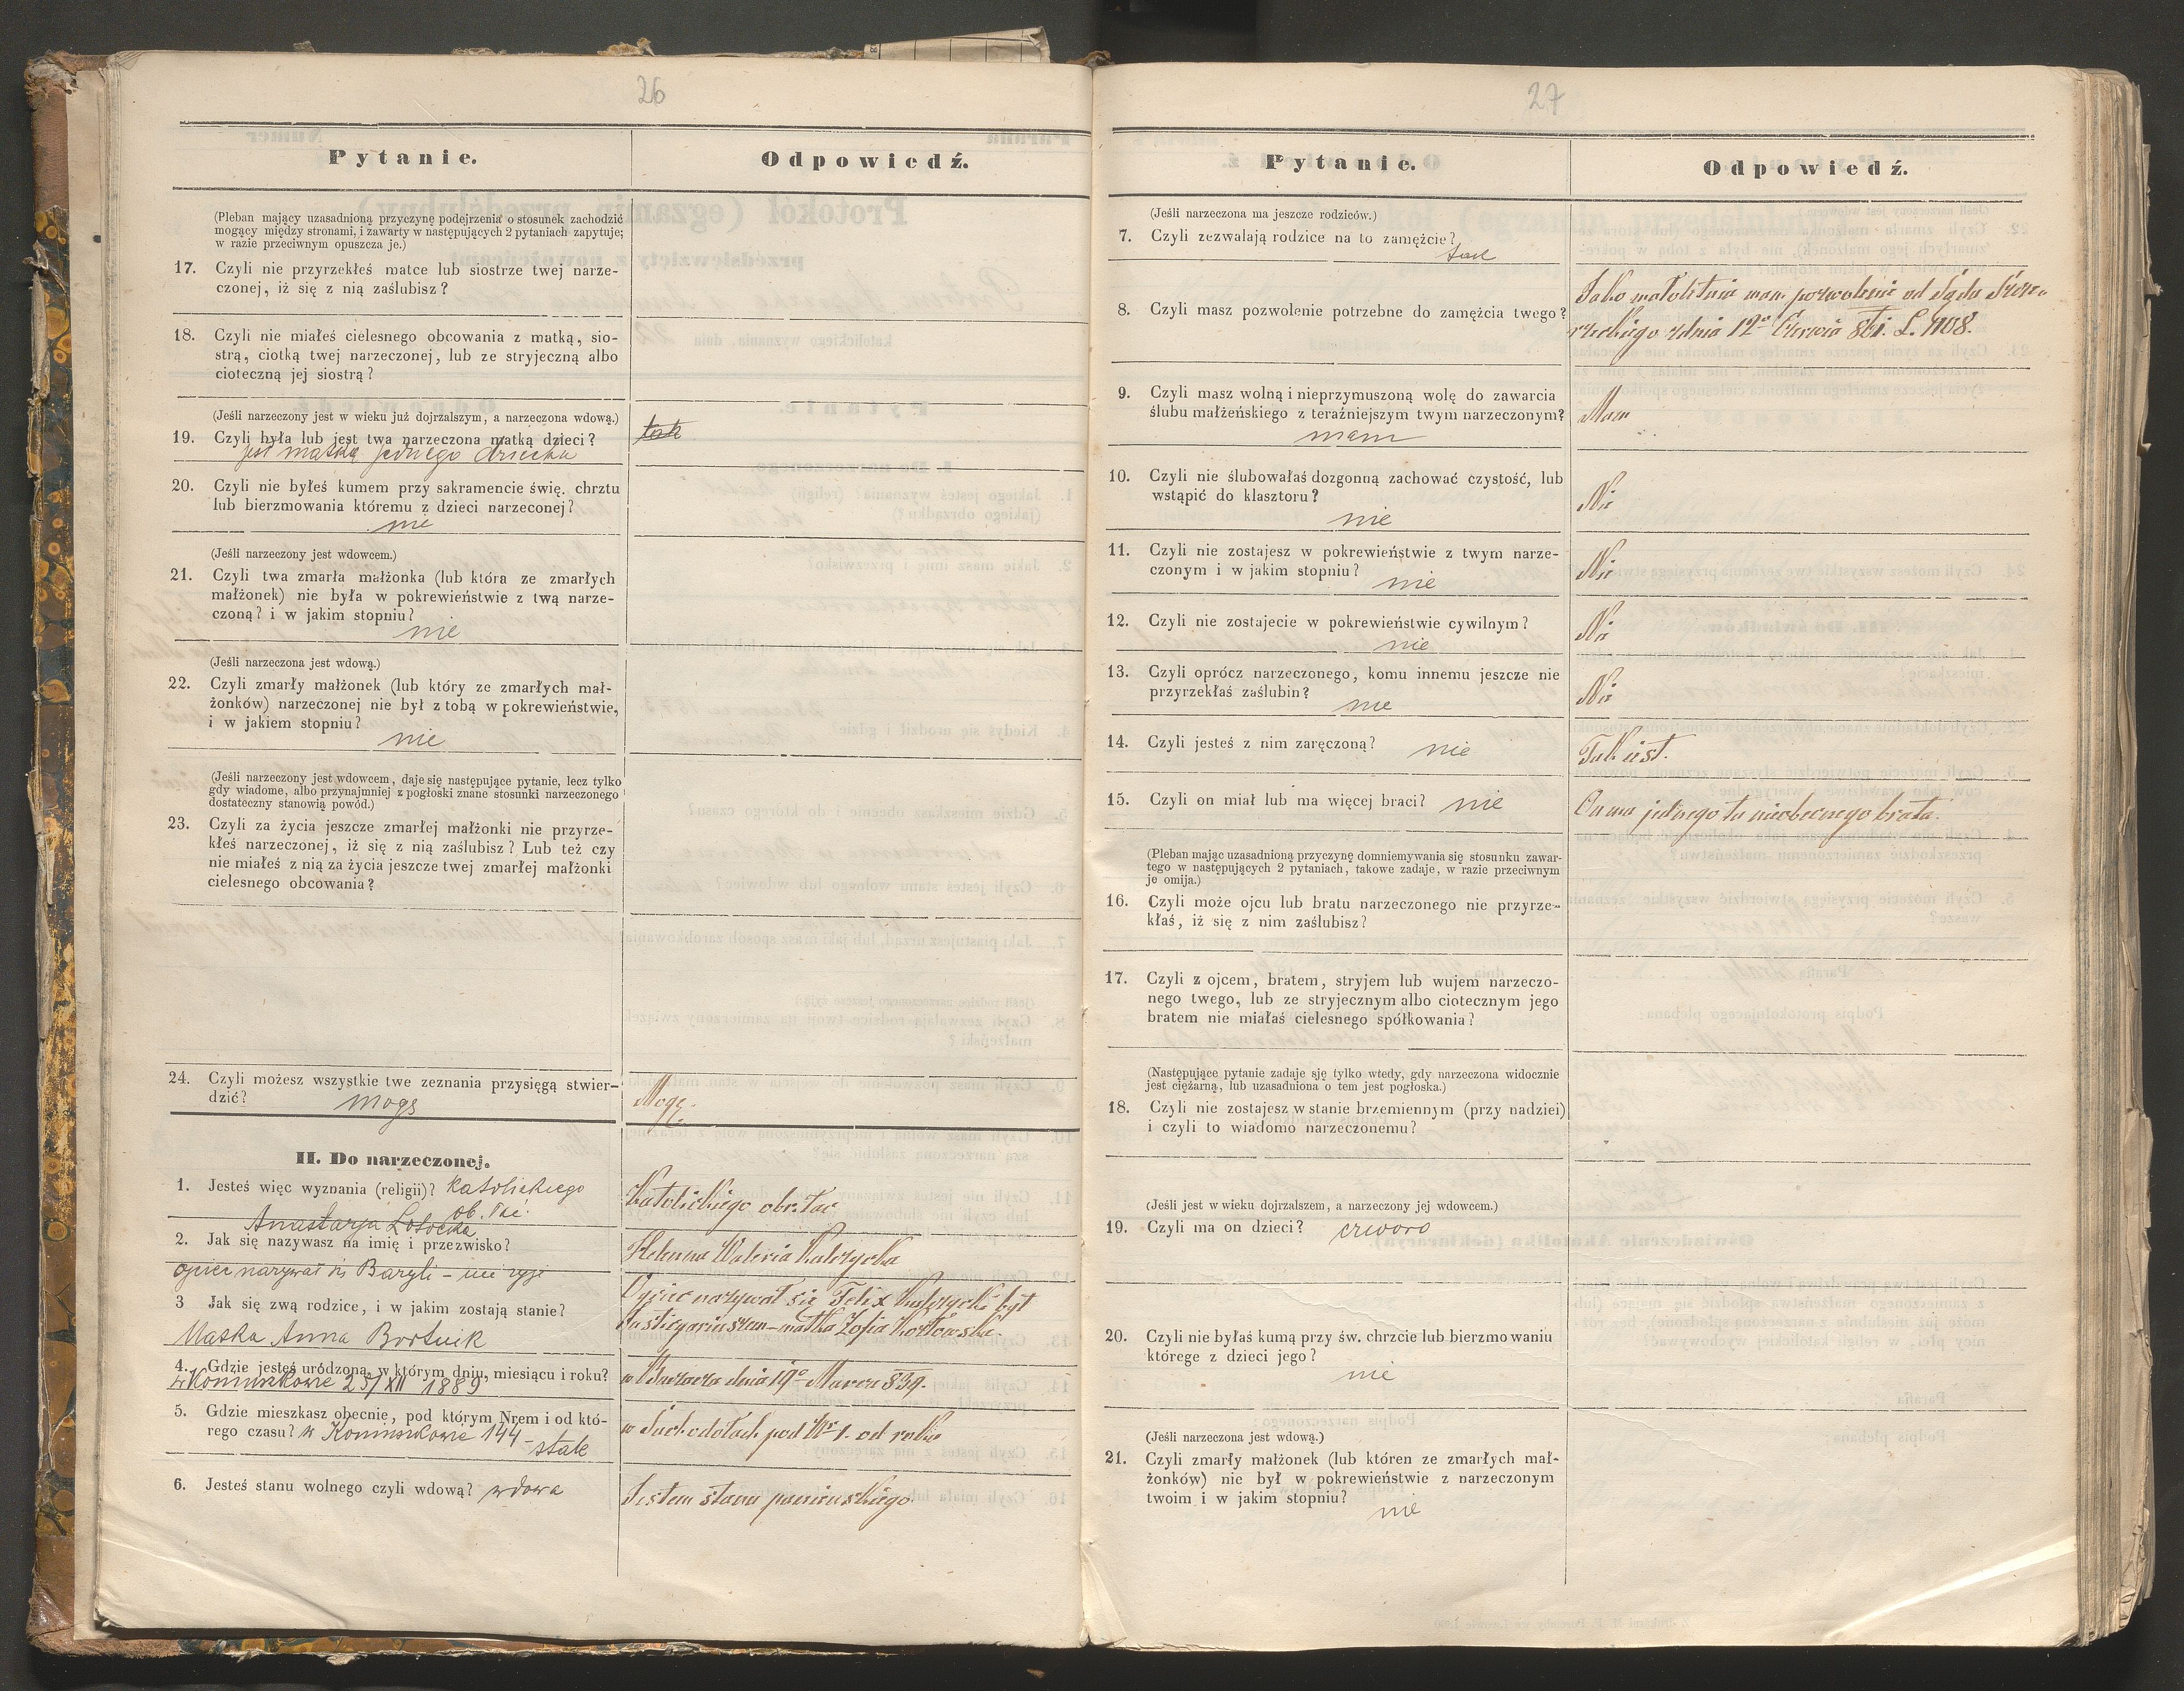 26
Pytanie.
Odpowiedź.
(Pleban mający uzasadnioną przyczynę podejrzenia o stosunek zachodzić
mogący między stronami, i zawarty w następujących 2 pytaniach zapytuje;
w razie przeciwnym opuszcza je.)
17. Czyli nie przyrzekłeś matce lub siostrze twej narze-
czonej, iż się z nią zaślubisz?
18. Czyli nie miałeś cielesnego obcowania z matką, sio-
strą, ciotką twej narzeczonej, lub ze stryjeczną albo
cioteczną jej siostrą?
(Jeśli narzeczony jest w wieku już dojrzalszym, a narzeczona wdową.)
19. Czyli była lub jest twa narzeczona matką dzieci?
tak
jest matką jednego dziecka
20. Czyli nie byłeś kumem przy sakramencie świę. chrztu
lub bierzmowania któremu z dzieci narzeconej?
nie
(Jeśli narzeczony jest wdowcem.)
21. Czyli twa zmarła małżonka (lub która ze zmarłych
małżonek) nie była w pokrewieństwie z twą narze-
czoną? i w jakim stopniu?
nie
(Jeśli narzeczona jest wdową.)
22. Czyli zmarły małżonek (lub który ze zmarłych mał-
żonków) narzeczonej nie był z tobą w pokrewieństwie,
i w jakiem stopniu?
nie
(Jeśli narzeczony jest wdowcem, daje się następujące pytanie, lecz tylko
gdy wiadome, albo przynajmniej z pogłoski znane stosunki narzeczonego
dostateczny stanowią powód.)
23. Czyli za życia jeszcze zmarłej małżonki nie przyrze-
kłeś narzeczonej, iż się z nią zaślubisz? Lub też czy
nie miałeś z nią za życia jeszcze twej zmarłej małżonki
cielesnego obcowania?
24. Czyli możesz wszystkie twe zeznania przysięgą stwier-
dzić? mogę
Mogę.
II. Do narzeczonej.
1. Jesteś więc wyznania (religii)? katolickiego
ob. łac.
Katolickiego obr. łac
Anastazja Łotocka
2. Jak się nazywasz na imię i przezwisko?
Helenna Waleria Kulczycka
ojciec nazywał się Baryli – nie żyje
3 Jak się zwą rodzice, i w jakim zostają stanie?
Ojciec nazywał się Felix Kulczycki był
Justicyariuszem – matka Zofia Kozłowska.
Matka Anna Bortnik
4. Gdzie jesteś urodzona, w którym dniu, miesiącu i roku?
w Koniuszkowie 25/XII 1889
dnia 19o Marca 839.
5. Gdzie mieszkasz obecnie, pod którym Nrem i od któ-
rego czasu? w Koniuszkowie 144 – stale
w Suchodołach pod Nr 1. od roku
6. Jesteś stanu wolnego czyli wdową? wdowa
Jestem stanu panieńskiego.
27
Pytanie.
Odpowiedź.
(Jeśli narzeczona ma jeszcze rodziców.)
7. Czyli zezwalają rodzice na to zamężcie?
tak
8. Czyli masz pozwolenie potrzebne do zamężcia twego?
Jako małoletnia mam pozwolenie od Sądu
z dnia 12o Czerwca 861. L. 1108.
9. Czyli masz wolną i nieprzymuszoną wolę do zawarcia
ślubu małżeńskiego z teraźniejszym twym narzeczonym?
mam
Mam
10. Czyli nie ślubowałaś dozgonną zachować czystość, lub
wstąpić do klasztoru?
nie
Nie
11. Czyli nie zostajesz w pokrewieństwie z twym narze-
czonym i w jakim stopniu? nie
Nie
12. Czyli nie zostajecie w pokrewieństwie cywilnym?
nie
Nie
13. Czyli oprócz narzeczonego, komu innemu jeszcze nie
przyrzekłaś zaślubin?
nie
Nie
14. Czyli jesteś z nim zaręczoną? nie
Tak iest.
15. Czyli on miał lub ma więcej braci? nie
On ma jednego tu nieobecnego brata.
(Pleban mając uzasadnioną przyczynę domniemywania się stosunku zawar-
tego w następujących 2 pytaniach, takowe zadaje, w razie przeciwnym
je omija.)
16. Czyli może ojcu lub bratu narzeczonego nie przyrze-
kłaś, iż się z nim zaślubisz?
17. Czyli z ojcem, bratem, stryjem lub wujem narzeczo-
nego twego, lub ze stryjecznym albo ciotecznym jego
bratem nie miałaś cielesnego spółkowania?
(Następujące pytanie zadaje się tylko wtedy, gdy narzeczona widocznie
jest ciężarną, lub uzasadniona o tem jest pogłoska.)
18. Czyli nie zostajesz w stanie brzemiennym (przy nadziei)
i czyli to wiadomo narzeczonemu?
(Jeśli jest w wieku dojrzalszem, a narzeczony jej wdowcem.)
19. Czyli ma on dzieci? czworo
20. Czyli nie byłaś kumą przy św. chrzcie lub bierzmowaniu
którege z dzieci jego?
nie
(Jeśli narzeczona jest wdową.)
21. Czyli zmarły małżonek (lub któren ze zmarłych mał-
żonków) nie był w pokrewieństwie z narzeczonym
twoim i w jakim stopniu?
nie